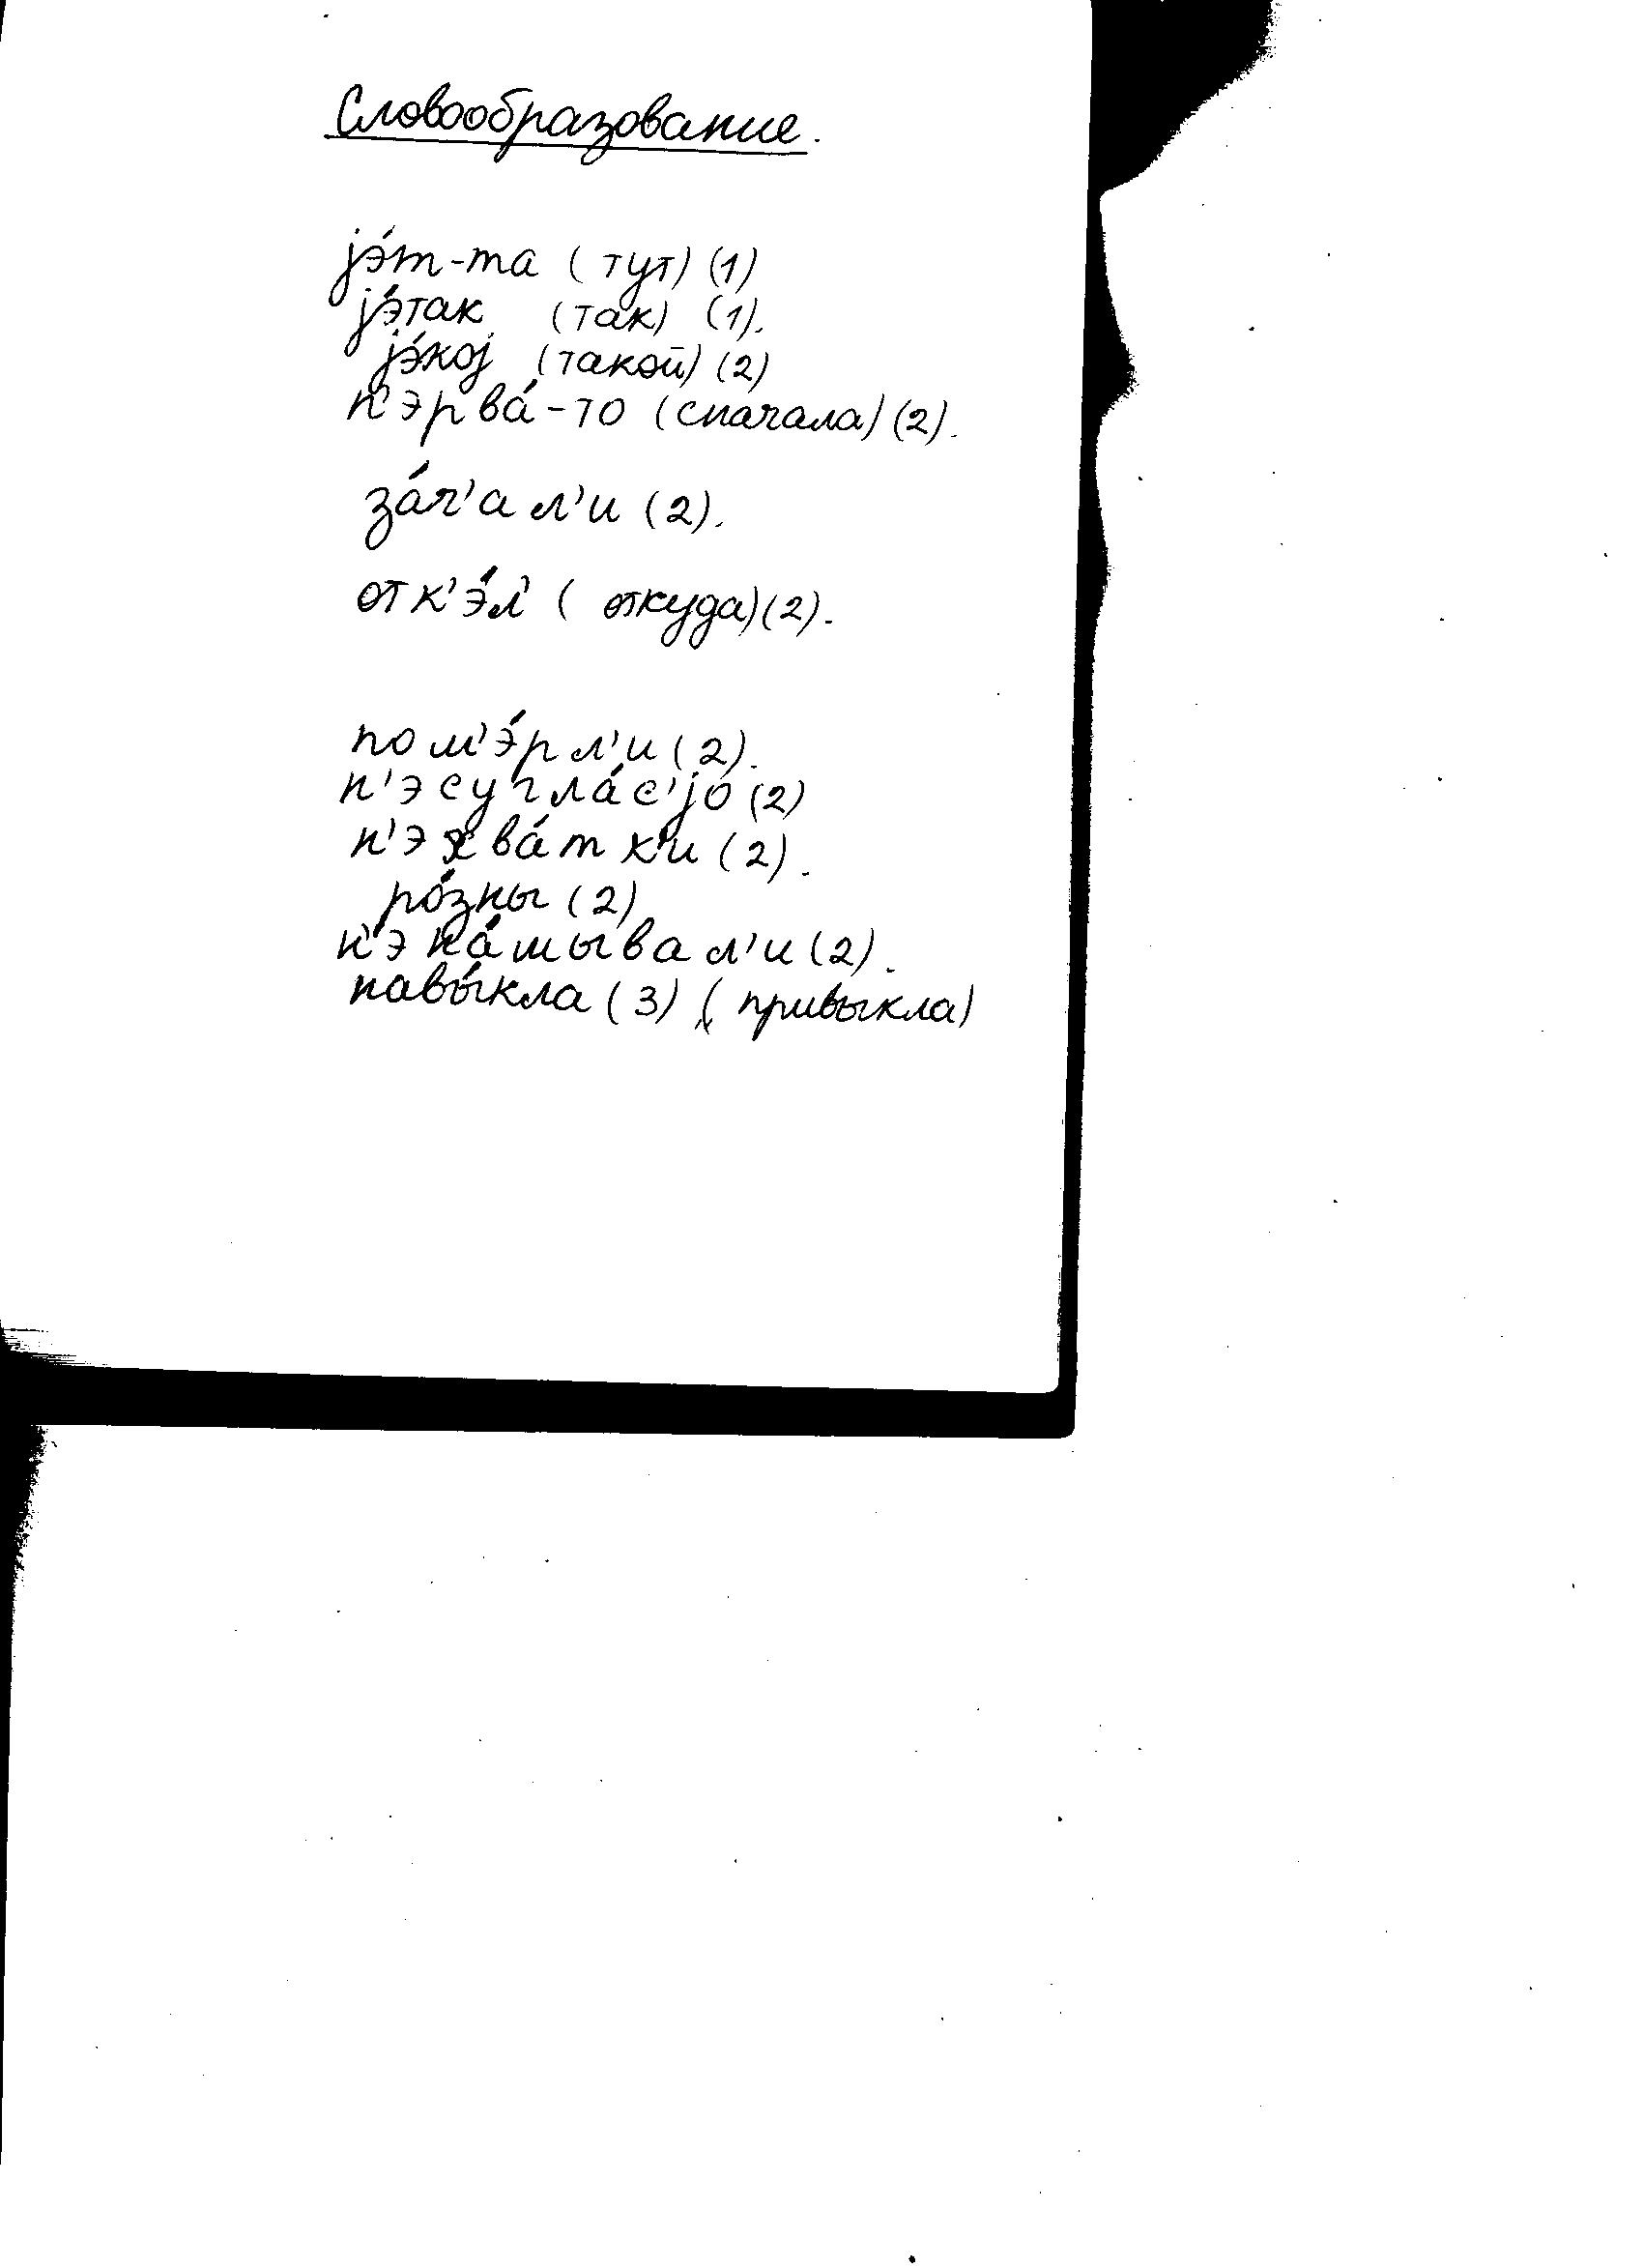 Словообразование.
jэ́т-та (тут) (1)
jэ́так (так) (1).
jэ́кој (такой) (2)
п'эрва́-то (сначала) (2).
за́ч'ал'и (2).
отк'э́л' (откуда) (2).
пом'э́рл'и (2).
н'эсугла́с'jо (2)
н'эхва́тк'и (2).
ро́зны (2)
н'эна́шывал'и (2).
навы́кла (3) (привыкла)